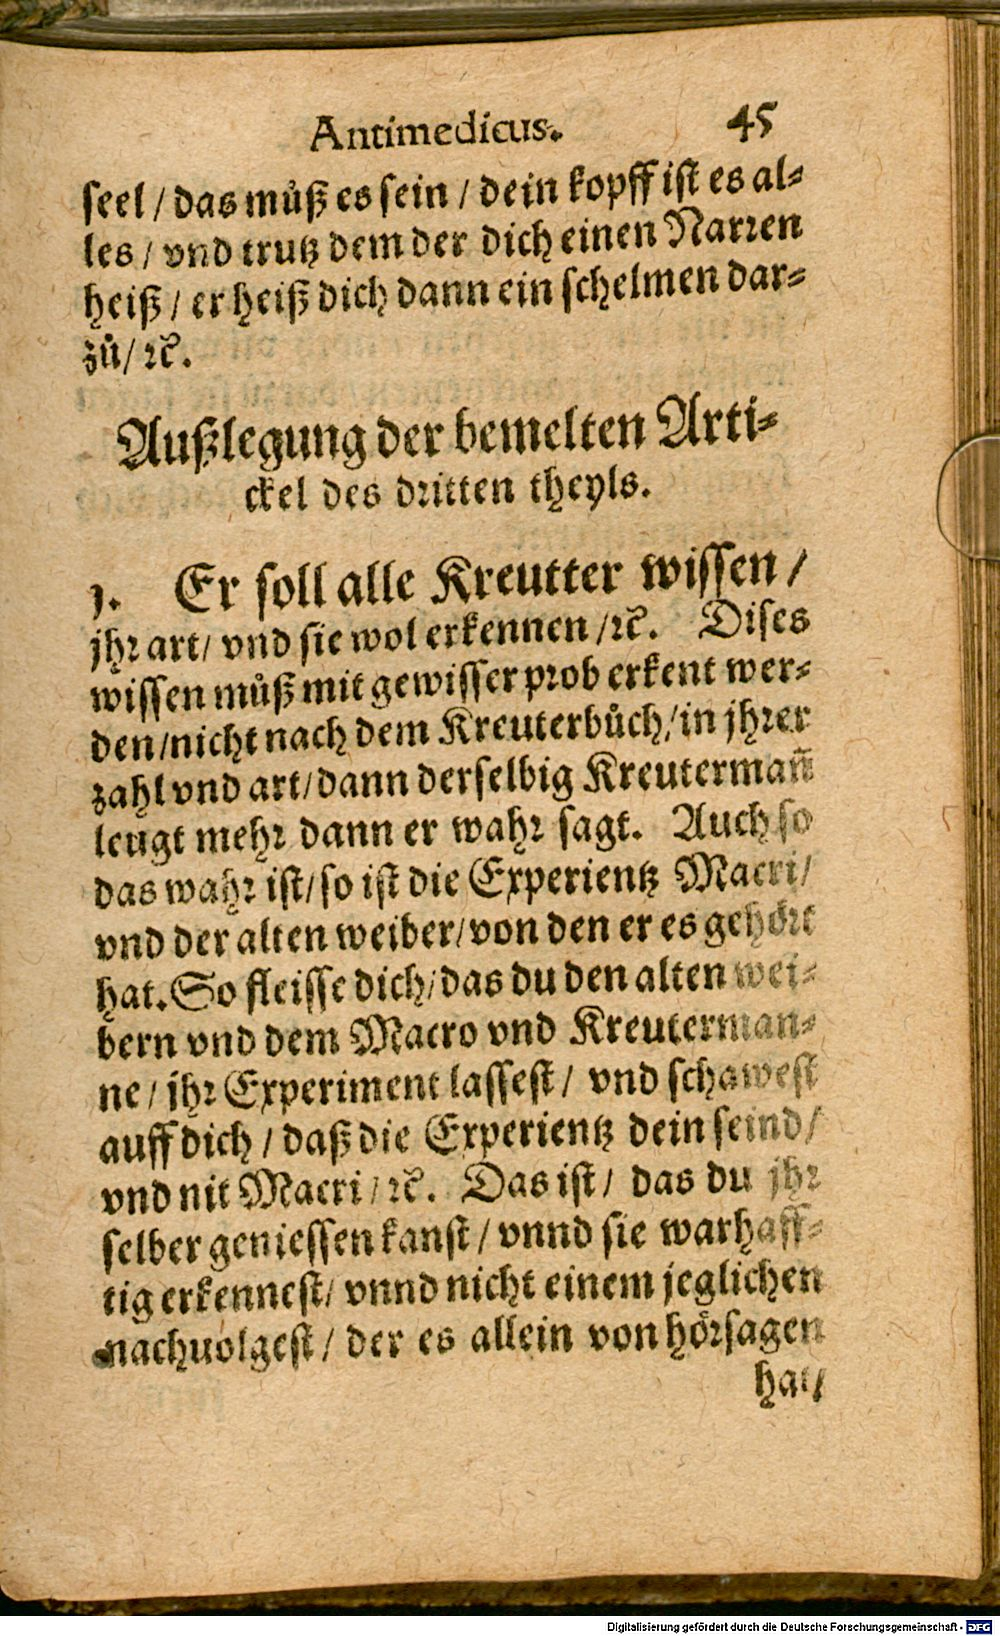 Antimedicus. 45
seel / das muͦß es sein / dein kopff ist es al-
les / vnd trutz dem der dich einen Narren
heiß / er heiß dich dann ein schelmen dar-
zuͦ / ꝛc.
Außlegung der bemelten Arti-
ckel des dritten theyls.
j. Er soll alle Kreutter wissen /
jhr art / vnd sie wol erkennen / ꝛc. Dises
wissen muͦß mit gewisser prob erkent wer-
den / nicht nach dem Kreuterbuͦch / in jhrer
zahl vnd art / dann derselbig Kreuterman̄
leugt mehr dann er wahr sagt. Auch so
das wahr ist / so ist die Experientz Macri /
vnd der alten weiber / von den er es gehoͤrt
hat. So fleisse dich / das du den alten wei-
bern vnd dem Macro vnd Kreuterman-
ne / jhr Experiment lassest / vnd schawest
auff dich / daß die Experientz dein seind /
vnd nit Macri / ꝛc. Das ist / das du jhr
selber geniessen kanst / vnnd sie warhaff-
tig erkennest / vnnd nicht einem jeglichen
nachuolgest / der es allein von hoͤrsagen
hat /
Digitalisierung gefördert durch die Deutsche Forschungsgemeinschaft - DFG